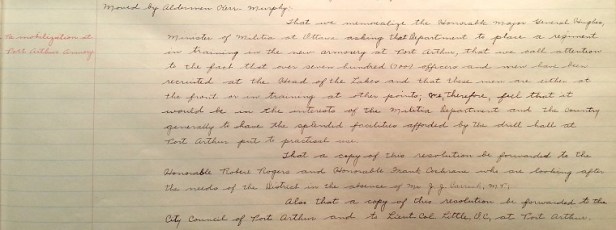 Moved by Alderman Murphy:
That we memorialize the Honorable Major General Hughes,
Minister of Militia at Ottawa asking that Department to place a regiment
in training in the new armoury at Port Arthur, that we call attention
Re mobilization at
Port Arthur Armory
to the fact that over seven hundred (700) officers and men have been
recruited at the Head of the Lakes and that these men are either at
the front or in training at other points, We, therefore, feel that it
would be in the interests of the Militia Department and the Country
generally to have the splendid facilities afforded by the drill hall at
Port Arthur put to practical use.
That a copy of this resolution be forwarded to the
Honorable Robert Rogers and Honourable Frank Cochrane who are looking after
the needs of the District in the absence of Mr J. J. Carrick, M.P.
Also that a copy of this resolution be forwarded to the
City Council of Port Arthur and to Lieut. Col. Little, O.C., at Port Arthur.